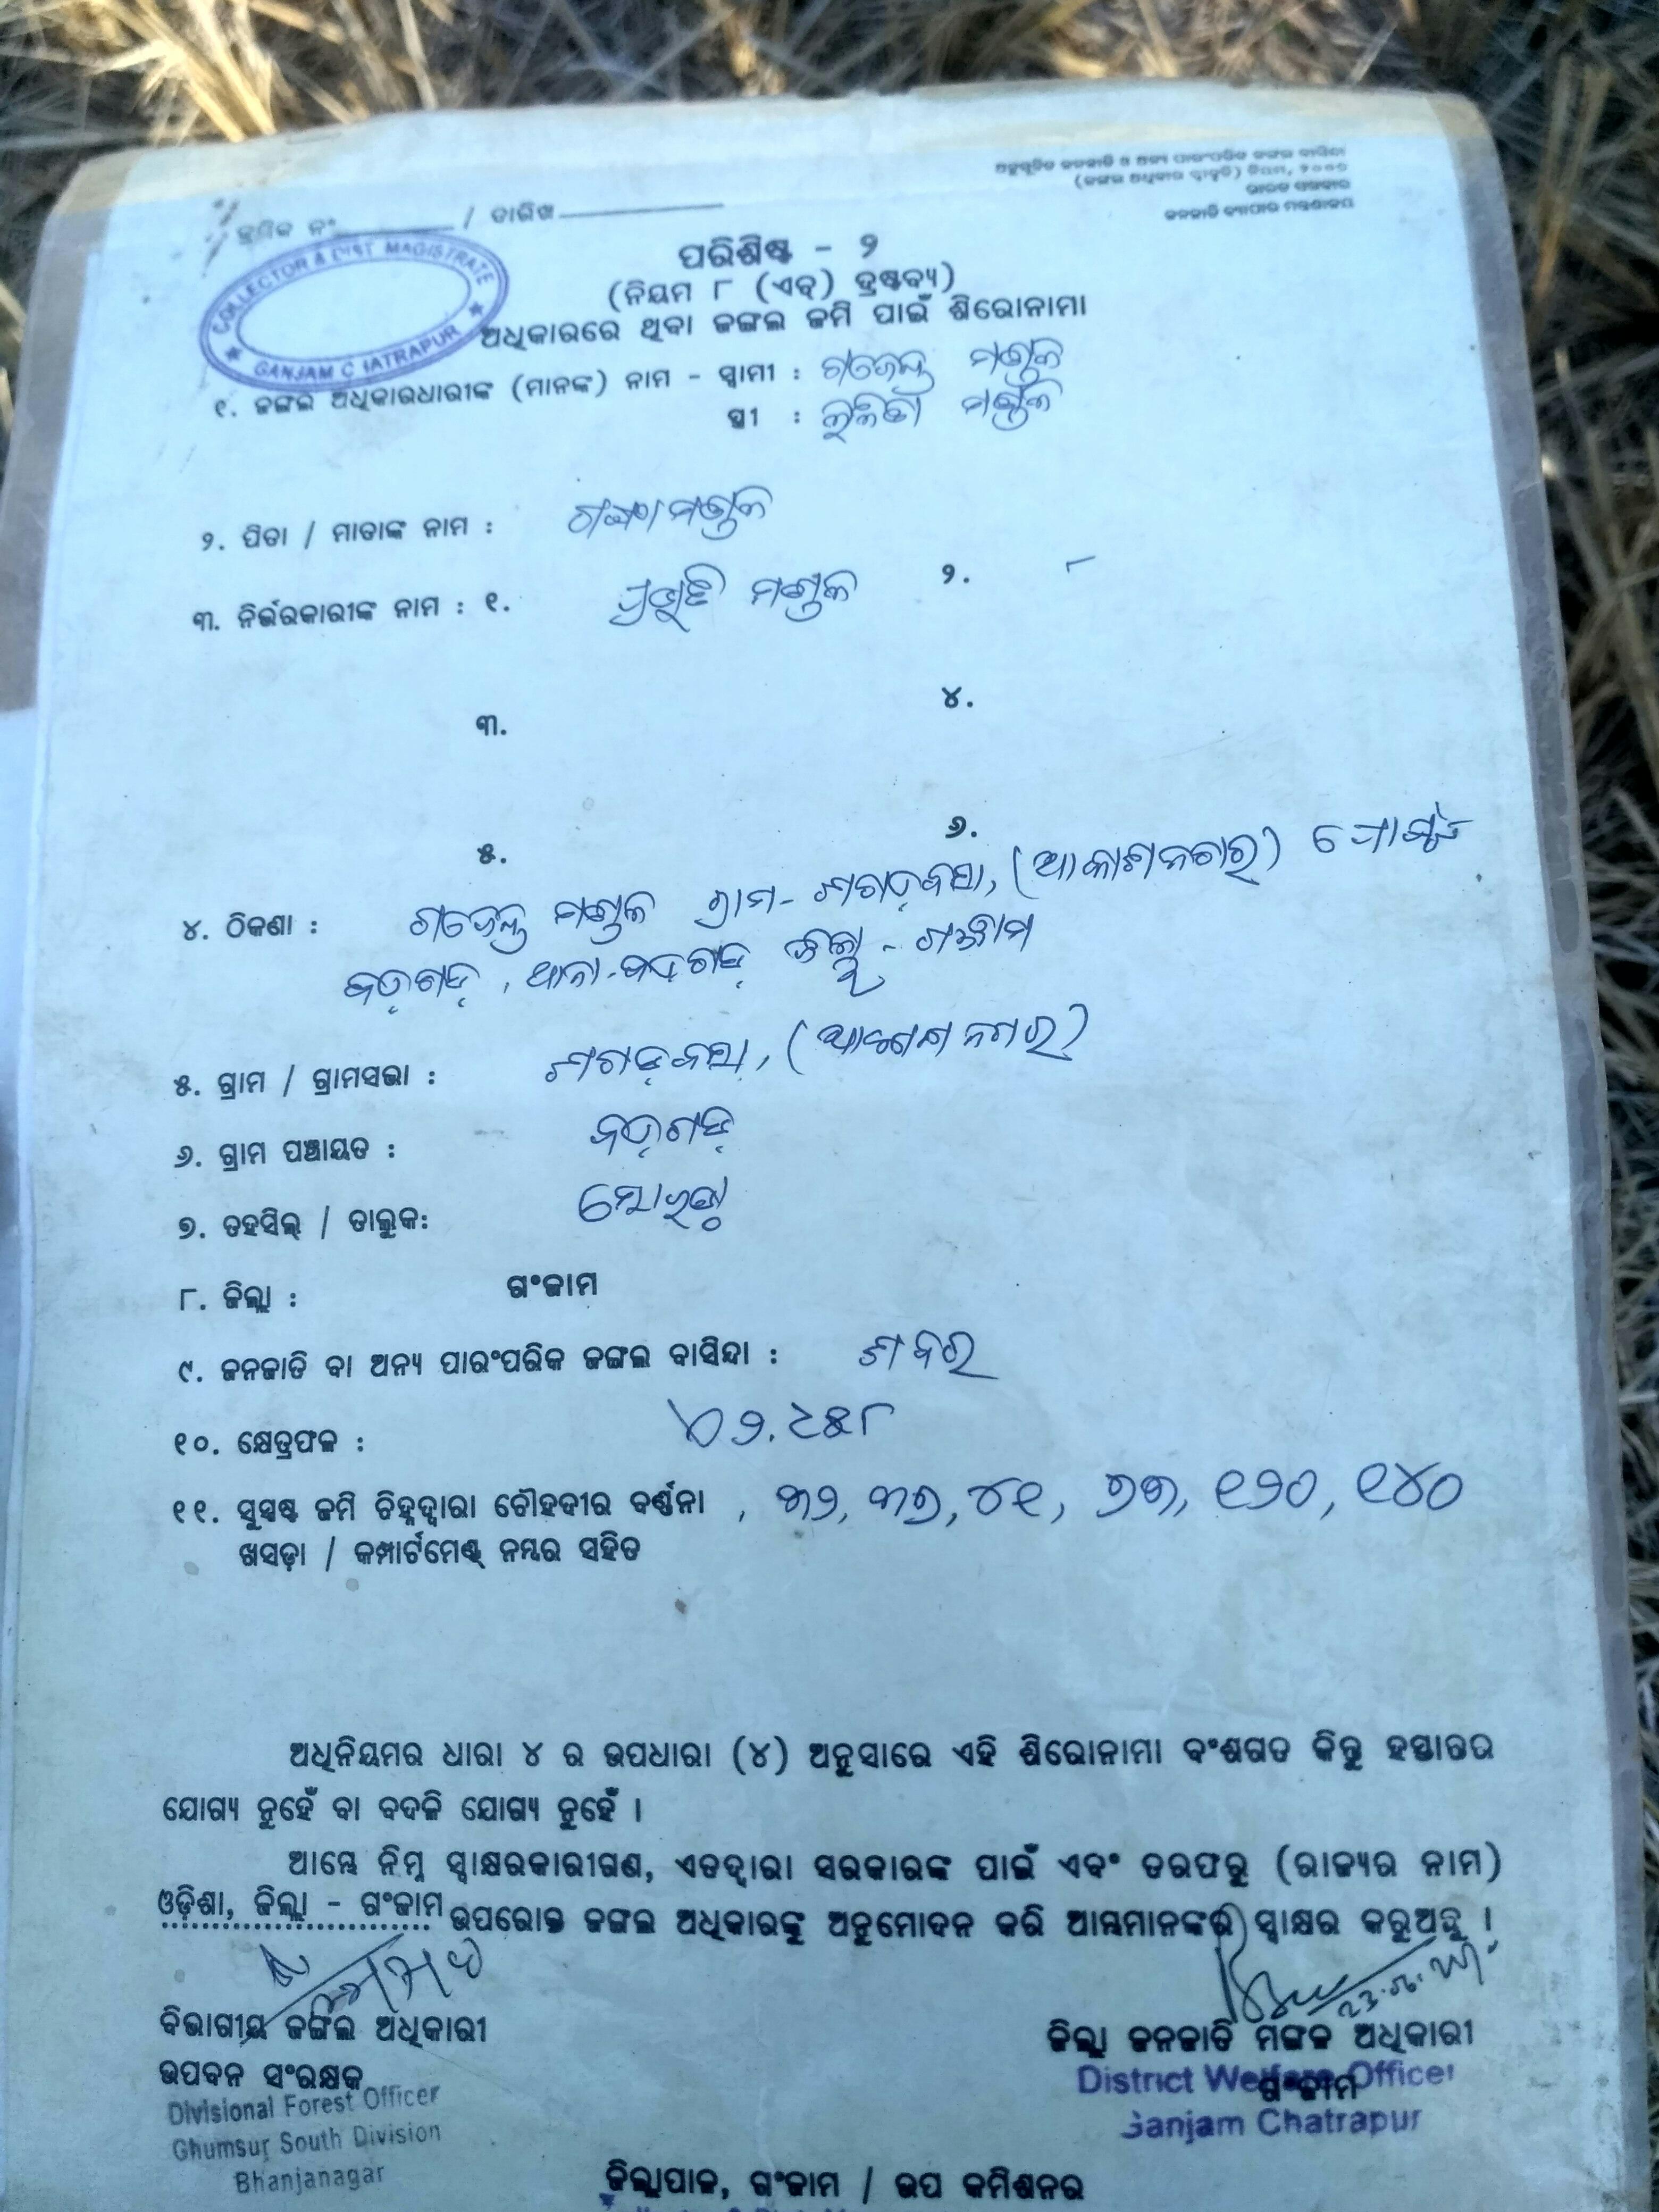 ଅନୁସୂଚିତ ଜନଜାତି ଓ ଅନ୍ୟ ପାରଂପରିକ ଜଙ୍ଗଲ ବାସିନ୍ଦା
(ଜଙ୍ଗଲ ଅଧିକାର ସ୍ବୀକୃତି) ନିୟମ, ୨୦୦୭
ଭାରତ ସରକାର
ଜନଜାତି ବ୍ୟାପାର ମନ୍ତ୍ରଣାଳୟ
କ୍ରମିକ ନଂ / ତାରିଖ
COLLECTOR & DIST MAGISTRATE
GANJAM CHATRAPUR
ପରିଶିଷ୍ଟ - ୨
(ନିୟମ ୮ (ଏଚ୍) ଦ୍ରଷ୍ଟବ୍ୟ)
ଅଧିକାରରେ ଥିବା ଜଙ୍ଗଲ ଜମି ପାଇଁ ଶିରୋନାମା
୧. ଜଙ୍ଗଲ ଅଧିକାରଧାରୀଙ୍କ (ମାନଙ୍କ) ନାମ - ସ୍ବାମୀ : ଗଜେନ୍ଦ୍ର ମଣ୍ଡଳ
ସ୍ତ୍ରୀ : ମଣ୍ଡଳ
୨. ପିତା / ମାତାଙ୍କ ନାମ : ମଣ୍ଡଳ
୩. ନିର୍ଭରକାରୀଙ୍କ ନାମ : ୧. ମଣ୍ଡଳ ୨.
୩. ୪.
୫. ୬.
୪. ଠିକଣା : ଗଜେନ୍ଦ୍ର ମଣ୍ଡଳ ଗ୍ରାମ- (ଆକାଶନଗର) ପୋଷ୍ଟ
ବଡ଼ଗଡ଼, ଥାନା-ବଡ଼ଗଡ଼ ଜିଲ୍ଲା - ଗଞ୍ଜାମ
୫. ଗ୍ରାମ / ଗ୍ରାମସଭା : (ଆକାଶ ନଗର)
୬. ଗ୍ରାମ ପଞ୍ଚାୟତ : ବଡ଼ଗଡ଼
୭. ତହସିଲ୍ / ତାଲୁକ:
୮. ଜିଲ୍ଲା : ଗଂଜାମ
୯. ଜନଜାତି ବା ଅନ୍ୟ ପାରଂପରିକ ଜଙ୍ଗଲ ବାସିନ୍ଦା : ଶବର
୧୦. କ୍ଷେତ୍ରଫଳ :
୧୧. ସୁସ୍ପଷ୍ଟ ଜମି ଚିହ୍ନଦ୍ବାରା ଚୌହଦ୍ଦୀର ବର୍ଣ୍ଣନା , ୩୨, ୩୭, ୪୧, ୭୩, ୧୨୦, ୧୪୦
ଖସଡ଼ା / କମ୍ପାର୍ଟମେଣ୍ଟ୍ ନମ୍ବର ସହିତ
ଅଧିନିୟମର ଧାରା ୪ ର ଉପଧାରା (୪) ଅନୁସାରେ ଏହି ଶିରୋନାମା ବଂଶଗତ କିନ୍ତୁ ହସ୍ତାନ୍ତର
ଯୋଗ୍ୟ ନୁହେଁ ବା ବଦଳି ଯୋଗ୍ୟ ନୁହେଁ ।
ଆମ୍ଭେ ନିମ୍ନ ସ୍ବାକ୍ଷରକାରୀଗଣ, ଏତଦ୍ବାରା ସରକାରଙ୍କ ପାଇଁ ଏବଂ ତରଫରୁ (ରାଜ୍ୟର ନାମ)
ଓଡ଼ିଶା, ଜିଲ୍ଲା - ଗଂଜାମ ଉପରୋକ୍ତ ଜଙ୍ଗଲ ଅଧିକାରଙ୍କୁ ଅନୁମୋଦନ କରି ଆମ୍ଭମାନଙ୍କର ସ୍ବାକ୍ଷର କରୁଅଛୁ ।
ବିଭାଗୀୟ ଜଙ୍ଗଲ ଅଧିକାରୀ
ଉପବନ ସଂରକ୍ଷକ
Divisional Forest Officer
Ghumsur South Division
Bhanjanagar
ଜିଲ୍ଲା ଜନଜାତି ମଙ୍ଗଳ ଅଧିକାରୀ
ଗଂଜାମ
District Welfare Officer
Ganjam Chatrapur
ଜିଲ୍ଲାପାଳ, ଗଂଜାମ / ଉପ କମିଶନର